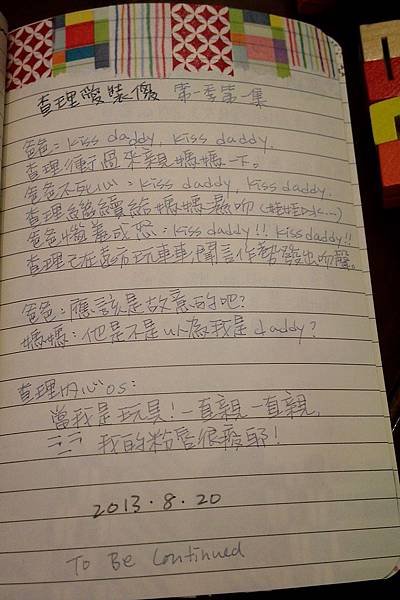 查理愛裝傻 第一季第一集
爸爸：kiss daddy, kiss daddy.
查理衝過來親媽媽一下。
爸爸不死心：kiss daddy, kiss daddy.
查理繼續給媽媽濕吻
爸爸惱羞成怒：kiss daddy!! kiss daddy!!
查理已在遠方玩車車聞言作勢發出吻聲。
爸爸：應該是故意的吧？
媽媽：他是不是以為我是daddy？
查理內心os：
當我是玩具！一直親一直親,
我的粉唇很疲耶！
2013.8.20
To Be Continued